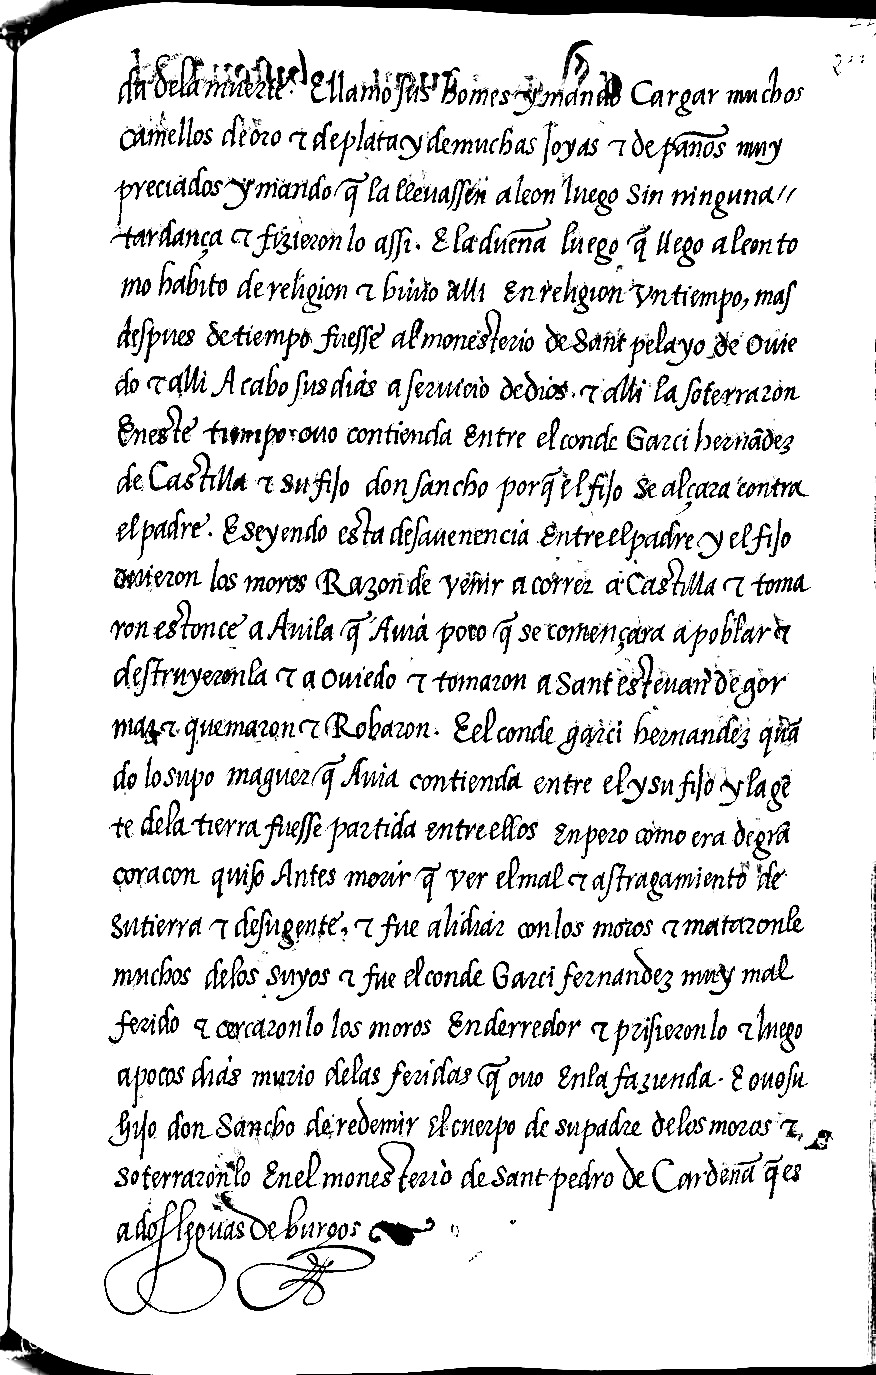 dia dela muerte. E llamo sus homes y mando Cargar muchos
camellos de oro ⁊ de plata y de muchas Joyas ⁊ de pan̄os muy
preciados y mando q̄ la llevassen a leon luego sin ninguna//
tardança ⁊ fizieron lo assi. E la duen̄a luego q̄ llego a leon to
mo habito de religion ⁊ biuio alli En religion Un tiempo, mas
despues de tiempo fuesse al monesterio de Sant pelayo de Ouie
do ⁊ alli Acabo sus dias a seruicio de dios. ⁊ alli la soterraron
En este tiempo ouo contienda Entre el conde Garci hernādez
de Castilla ⁊ su fijo don sancho porq̄ el fijo se alçara contra
el padre. E seyendo esta desauenencia Entre el padre y el fijo
ouieron los moros Razon de venir a correr a Castilla ⁊ toma
ron estonce a Auila q̄ Auia poco q̄ se començara a poblar ⁊
destruyeronla ⁊ a Ouiedo ⁊ tomaron a Sant esteuan de gor
maz ⁊ quemaron ⁊ Robaron. E el conde garci hernandez quā
do lo supo maguer q̄ Auia contienda entre el y su fijo y la gē
te dela tierra fuesse partida entre ellos Enpero como era de grā
coracon quiso Antes morir q̄ ver el mal ⁊ astragamiento de
su tierra ⁊ de su gente, ⁊ fue a lidiar con los moros ⁊ mataronle
muchos delos suyos ⁊ fue el conde Garci fernandez muy mal
ferido ⁊ cercaronlo los moros Enderredor ⁊ prisieronlo ⁊ luego
a pocos dias murio delas feridas q̄ ouo En la fazienda. E ouo su
hijo don Sancho de redemir El cuerpo de su padre delos moros ⁊
soterraronlo En el monesterio de Sant pedro de Carden̄a q̄ es
a dos leguas de burgos